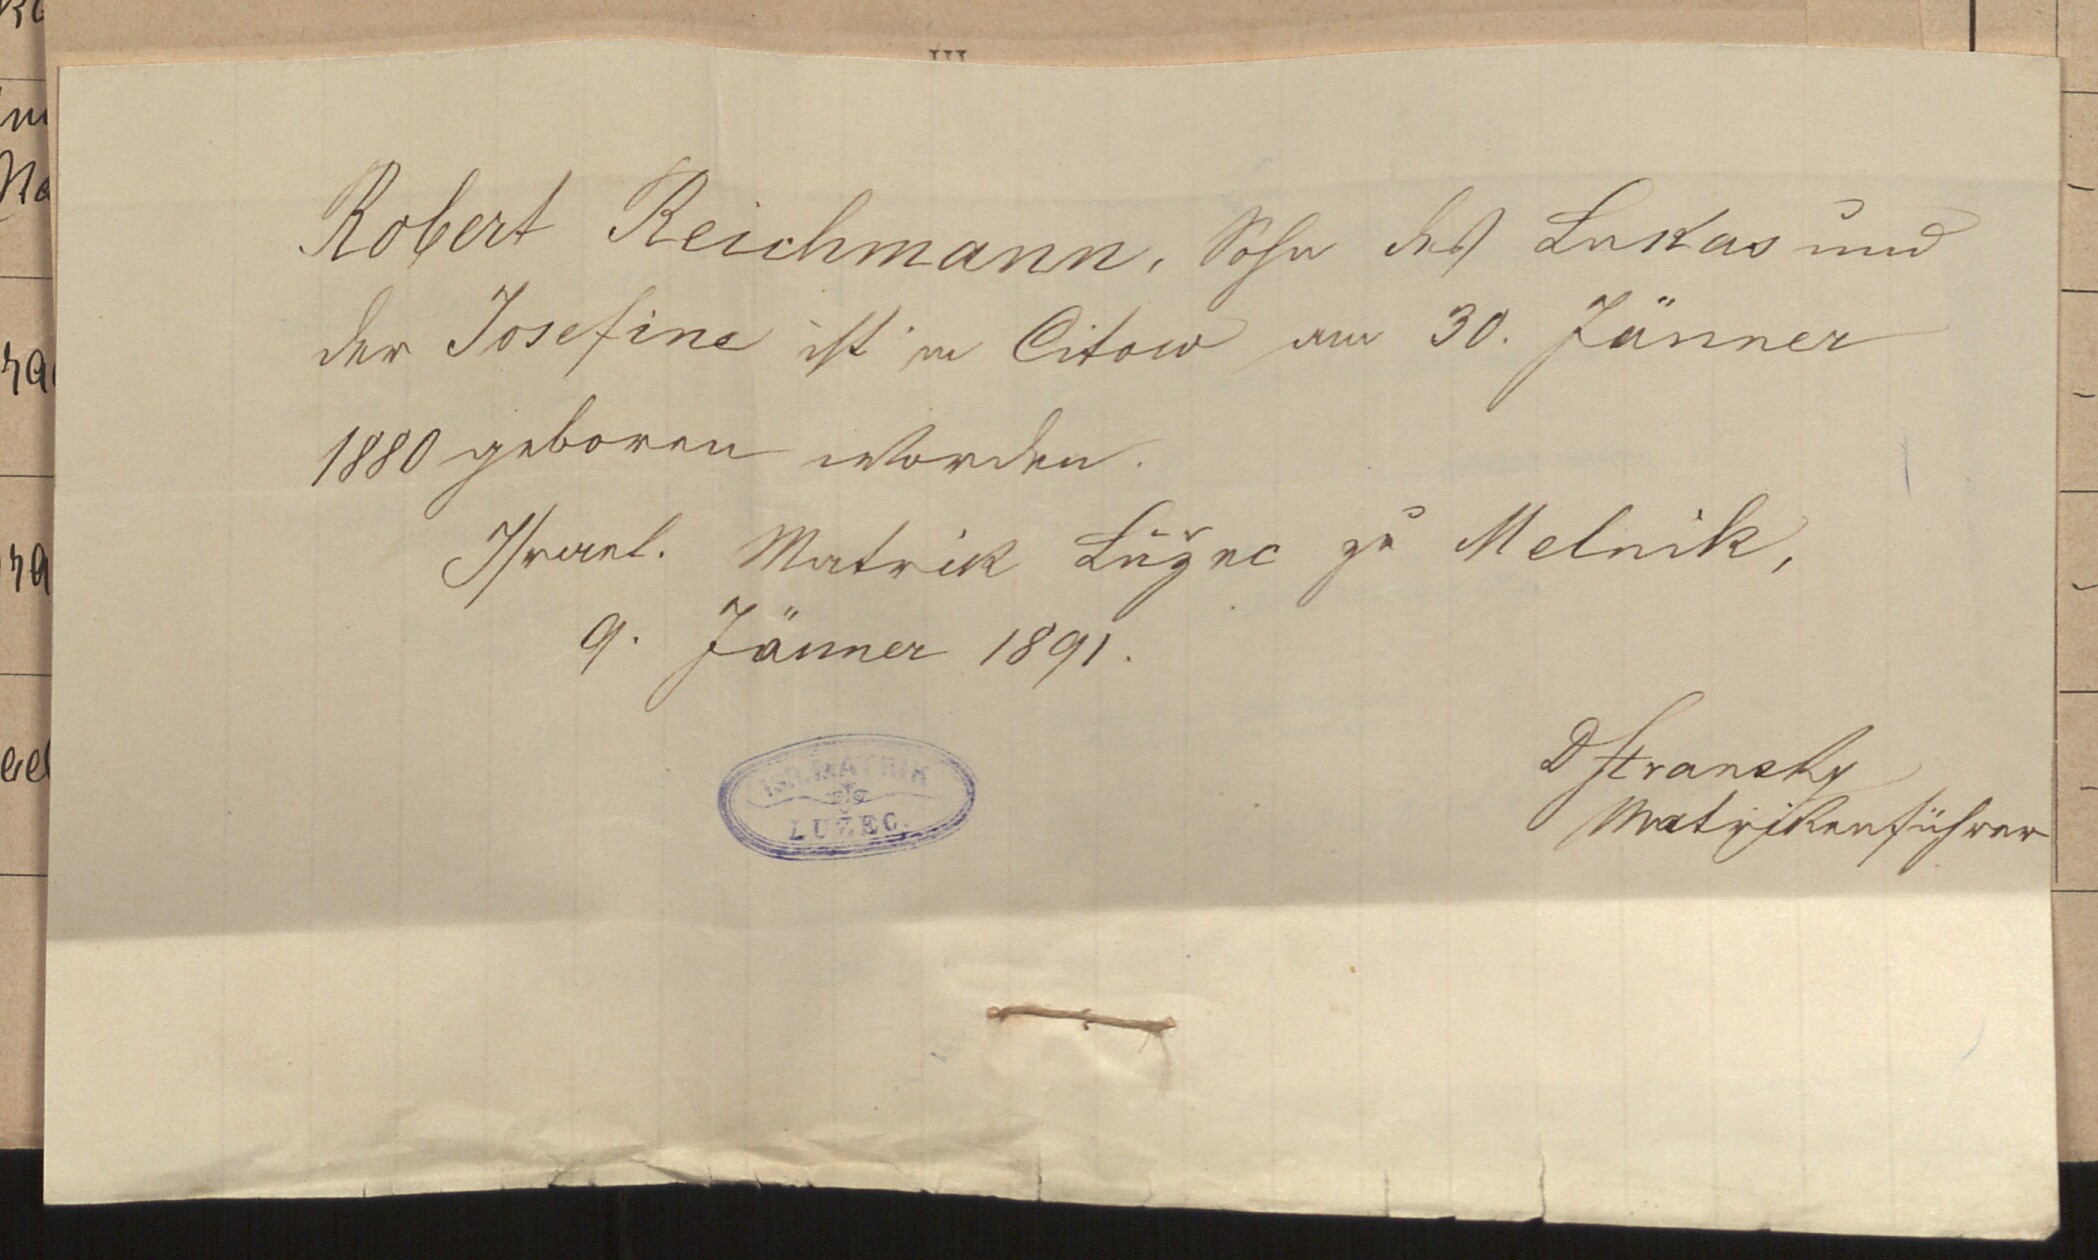 III
Robert Reichmann, Sohn des Lukas und
der Josefine ist in Citow am 30. Jänner
1880 geboren worden.
Israel. Matrik Lužec zu Melnik,
9. Jänner 1891.
ISR. MATRIK
LUŽEC.
D Stransky
Matrikenführer